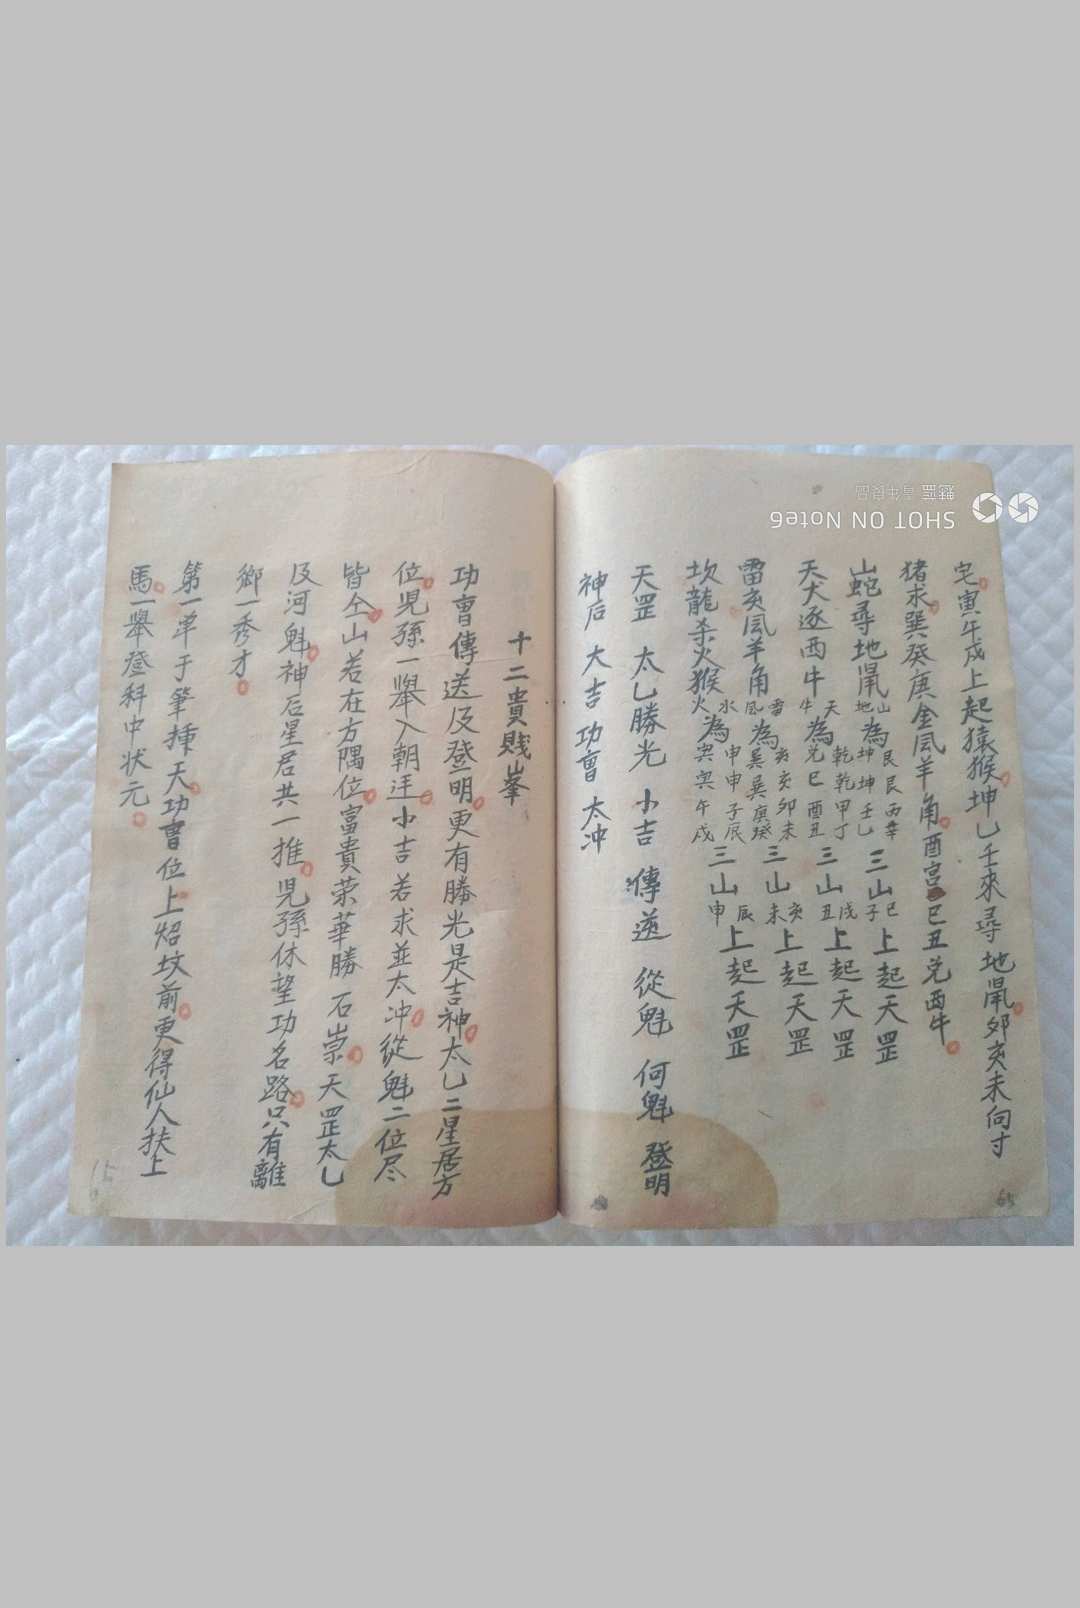 宅寅午戌上起猿猴坤乙壬來尋地鼠卯亥未向寸
猪求巽癸庚金風羊角酉宮巳丑兌西牛
山蛇尋地鼠 山地為 艮艮丙辛 坤坤壬乙 三山 巳子 上起天罡
天犬逐西牛 天牛為 乾乾甲丁 兌巳酉丑 三山 戌丑 上起天罡
雷亥風羊角 雷風為 亥亥卯未 巽巽庚癸 三山 亥未 上起天罡
坎龍杀火猴 水火為 申申子辰 寅寅午戌 三山 辰申 上起天罡
天罡 太乙勝光 小吉 傳送 從魁 何魁 登明
神后 大吉 功曹 太冲
十二貴賤峯
功曹傳送及登明更有勝光是吉神太乙二星居方
位児孫一舉入朝迋小吉若求並太冲從魁二位尽
皆仝山若在方隅位富貴荣華勝石崇天罡太乙
及河魁神后星君共一推児孫休望功名路只有離
鄉一秀才
第一峯于筆揷天功曹位上炤坟前更得仙人扶上
馬一舉登科中状元
65
SHOT ON Note6
魅蓝 青年良品